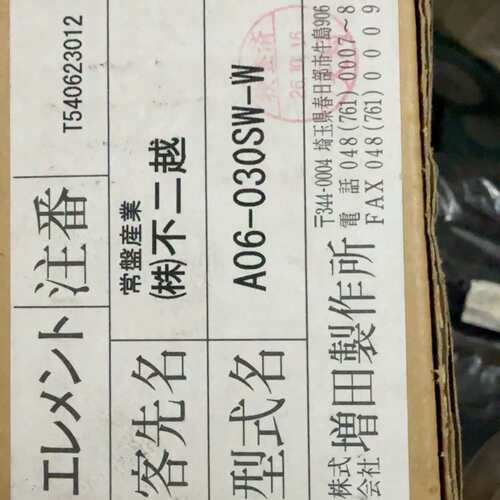 エレメント 注番 T540623012
客先名 常盤産業
(株)不二越
型式名 A06-030SW-W
検査済
26.10.16
株式会社 増田製作所
〒344-0004 埼玉県春日部市牛島906
電話 048(761)0007~8
FAX 048(761)0009